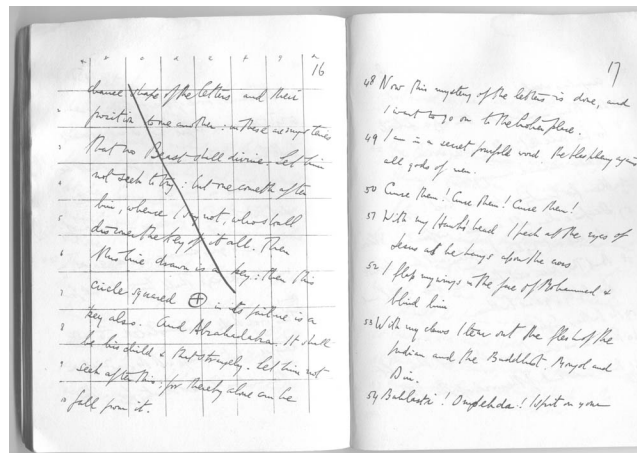 16
chance shape of the letters and their
position to one another: in these are mysteries
that no Beast shall divine. Let him
not seek to try: but one cometh after
him, whence I say not, who shall
discover the key of it all. Then
this line drawn is a key: then this
circle squared in its failure is a
key also. And Abrahadabra. It shall
be his child & that strangely. Let him not
seek after this; for thereby alone can he
fall from it.
17
48 Now this mystery of the letters is done, and
I want to go on to the holier place.
49 I am in a secret fourfold word, the blasphemy against
all gods of men.
50 Curse them! Curse them! Curse them!
51 With my Hawk's head I peck at the eyes of
Jesus as he hangs upon the cross
52 I flap my wings in the face of Mohammed &
blind him
53 With my claws I tear out the flesh of the
Indian and the Buddhist, Mongol and
Din.
54 Bahlasti! Ompehda! I spit on your